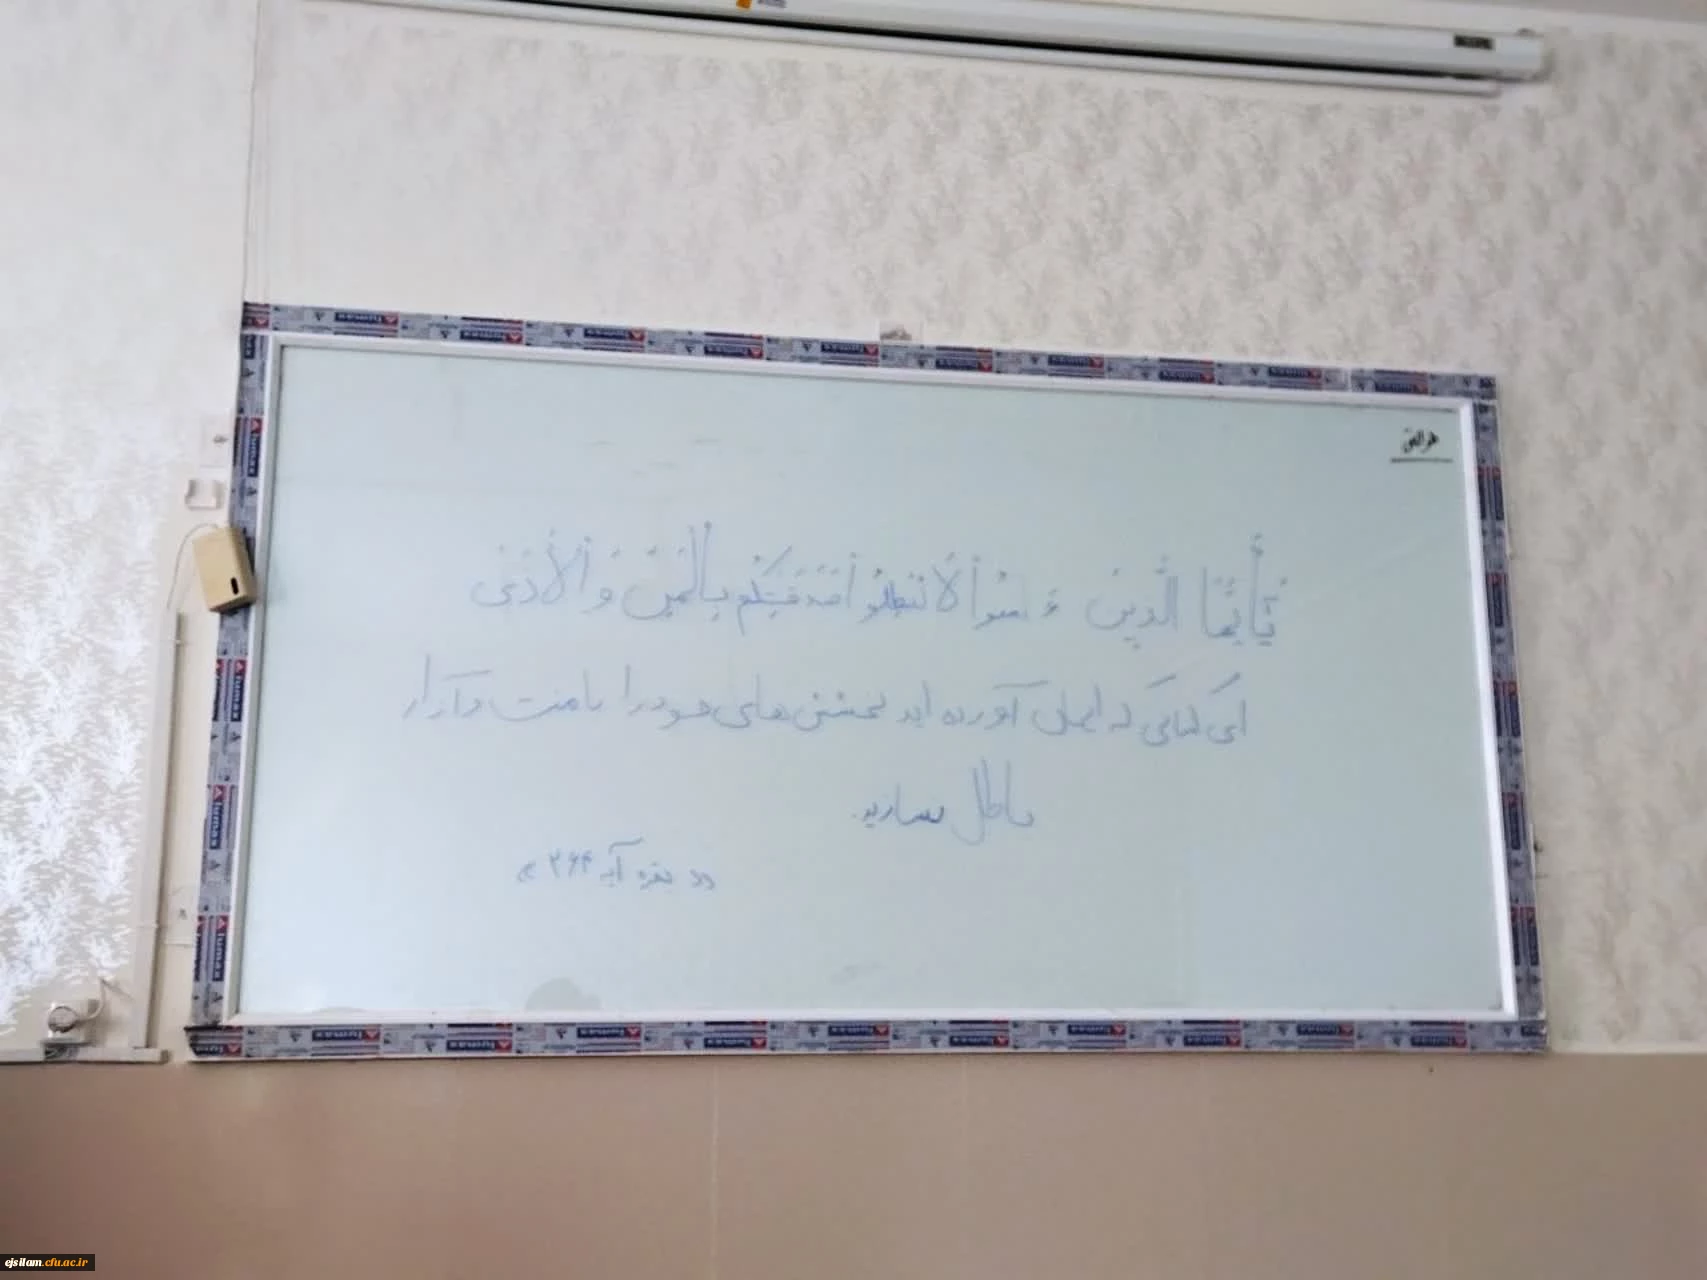 هوالحق
يَٰٓأَيُّهَا الَّذِينَ ءَامَنُوا لَا تُبْطِلُوا صَدَقَٰتِكُم بِالْمَنِّ وَالْأَذَىٰ
ای کسانی که ایمان آورده اید بخشش های خود را با منت و آزار
باطل نسازید.
«بقره آیه ۲۶۴»
ejsilam.cfu.ac.ir